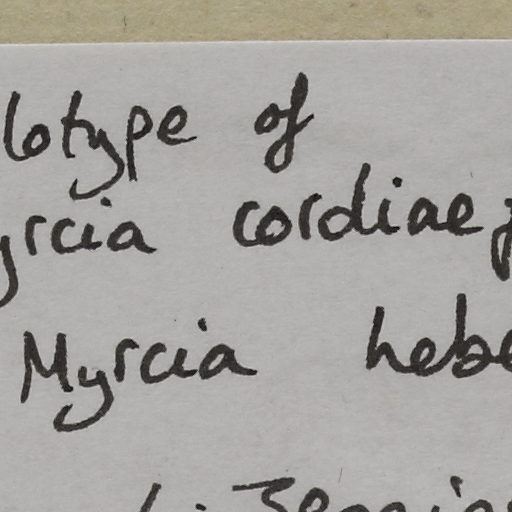 lotype of
yrcia cordiae
Myrcia hebe